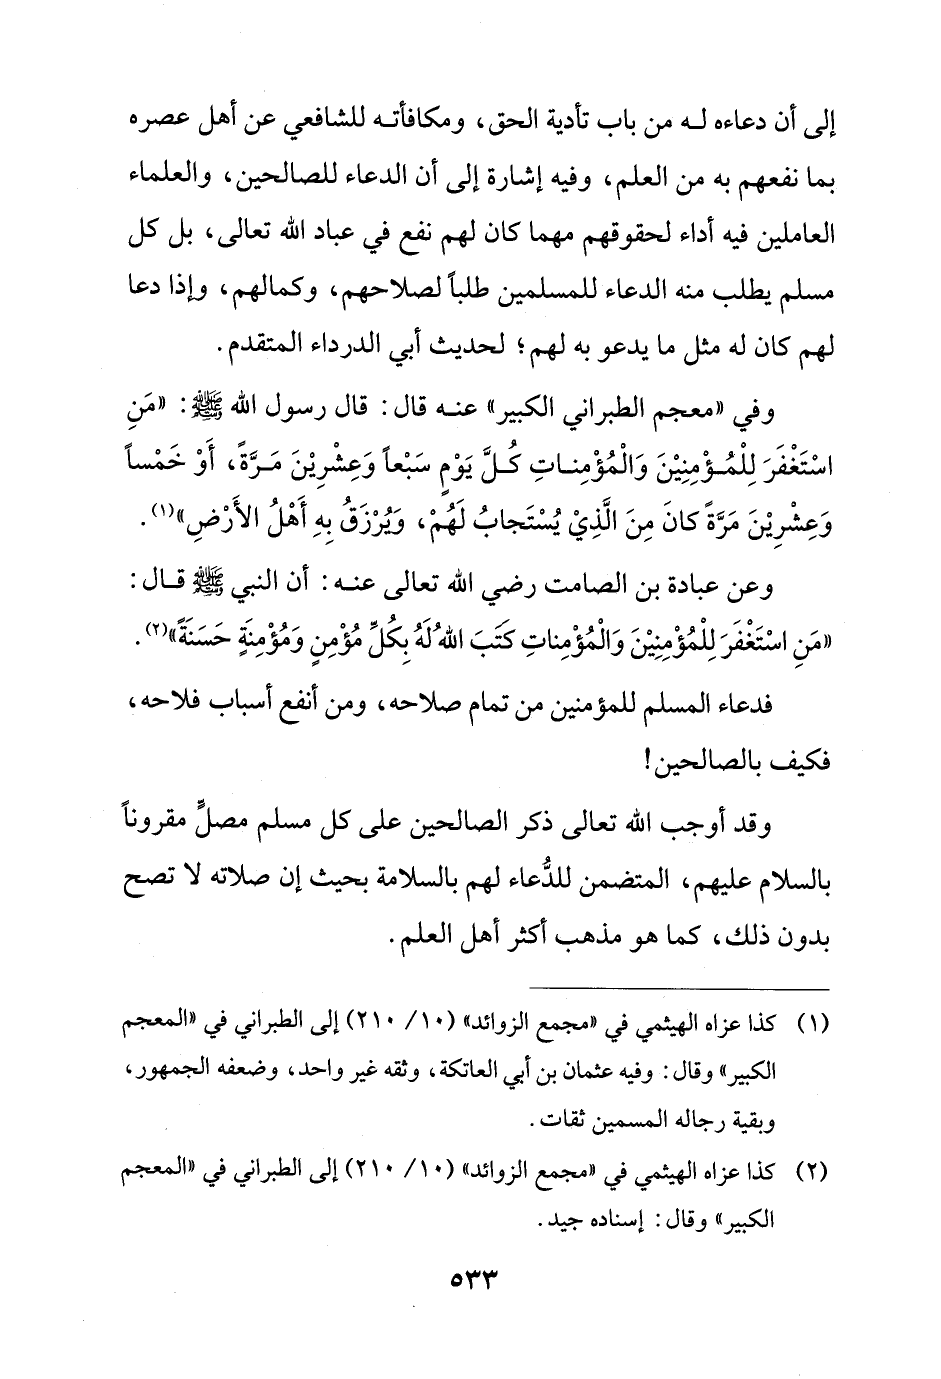 إلى أن دعاءه له من باب تأدية الحق، ومكافأته للشافعي عن أهل عصره
بما نفعهم به من العلم، وفيه إشارة إلى أن الدعاء للصالحين، والعلماء
العاملين فيه أداء لحقوقهم مهما كان لهم نفع في عباد الله تعالى، بل كل
مسلم يطلب منه الدعاء للمسلمين طلباً لصلاحهم، وكمالهم، وإذا دعا
لهم كان له مثل ما يدعو به لهم؛ لحديث أبي الدرداء المتقدم.
وفي «معجم الطبراني الكبير» عنه قال: قال رسول الله ﷺ: «مَنِ
اسْتَغْفَرَ لِلْمُؤْمِنِيْنَ وَالْمُؤْمِنـاتِ كُـلَّ يَوْمٍ سَبْعاً وَعِشْرِيْنَ مَـرَّةً، أَوْ خَمْساً
وَعِشْرِيْنَ مَرَّةً كانَ مِنَ الَّذِيْ يُسْتَجابُ لَهُمْ، وَيُرْزَقُ بِهِ أَهْلُ الأَرْضِ»(١).
وعن عبادة بن الصامت رضي الله تعالى عنه: أن النبي ﷺ قال:
«مَنِ اسْتَغْفَرَ لِلْمُؤْمِنِيْنَ وَالْمُؤْمِناتِ كَتَبَ اللهُ لَهُ بِكُلِّ مُؤْمِنٍ وَمُؤْمِنَةٍ حَسَنَةً»(٢).
فدعاء المسلم للمؤمنين من تمام صلاحه، ومن أنفع أسباب فلاحه،
فكيف بالصالحين!
وقد أوجب الله تعالى ذكر الصالحين على كل مسلم مصلٍّ مقروناً
بالسلام عليهم، المتضمن للدُّعاء لهم بالسلامة بحيث إن صلاته لا تصح
بدون ذلك، كما هو مذهب أكثر أهل العلم.
(١) كذا عزاه الهيثمي في «مجمع الزوائد» (١٠/ ٢١٠) إلى الطبراني في «المعجم
الكبير» وقال: وفيه عثمان بن أبي العاتكة، وثقه غير واحد، وضعفه الجمهور،
وبقية رجاله المسمين ثقات.
(٢) كذا عزاه الهيثمي في «مجمع الزوائد» (١٠/ ٢١٠) إلى الطبراني في «المعجم
الكبير» وقال: إسناده جيد.
٥٣٣